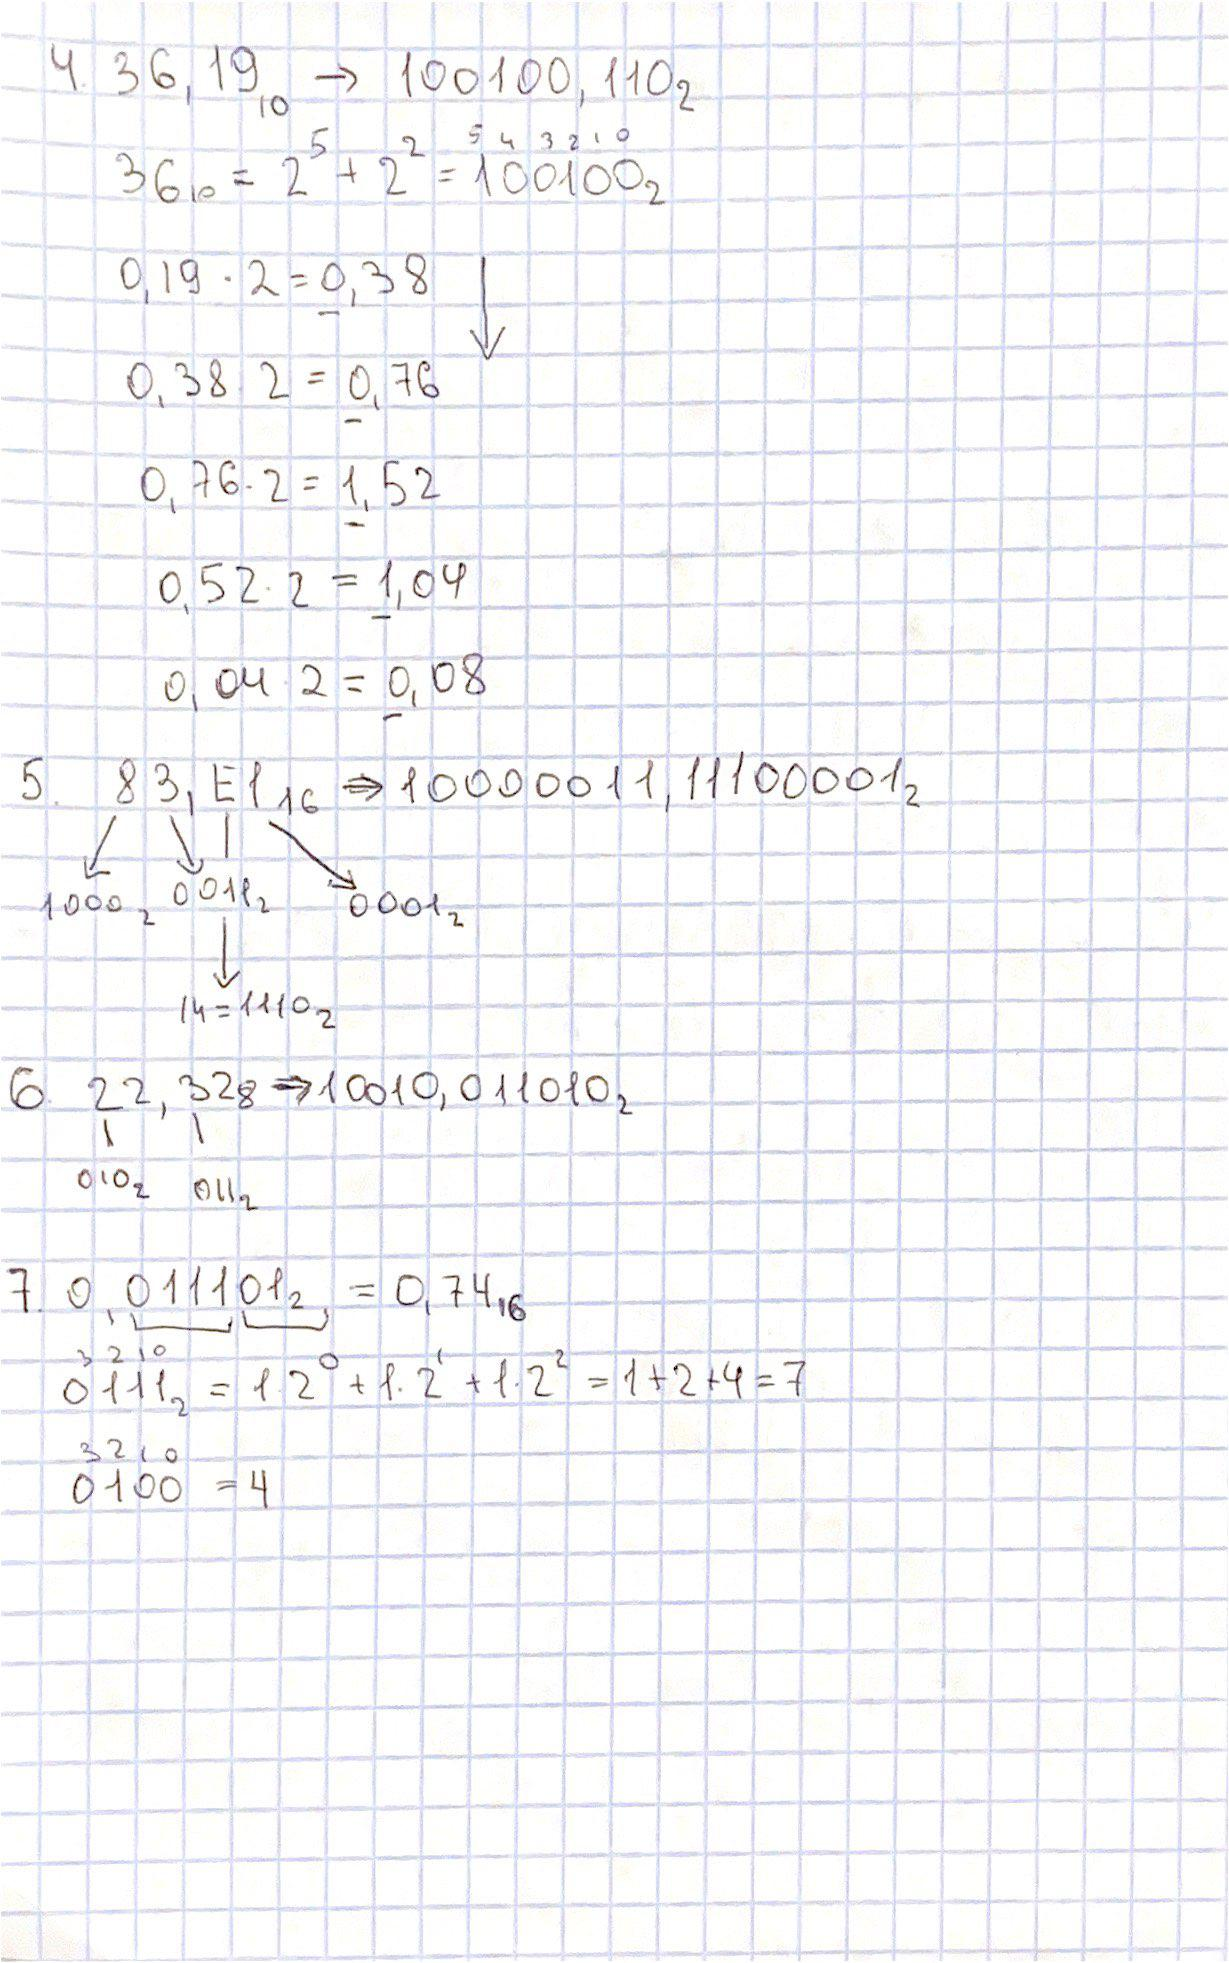 4. 36,19₁₀ → 100100,110₂
5 4 3 2 1 0
36₁₀ = 2⁵ + 2² = 100100₂
0,19 · 2 = 0,38
0,38 · 2 = 0,76
0,76 · 2 = 1,52
0,52 · 2 = 1,04
0,04 · 2 = 0,08
5. 83,E1₁₆ ⇒ 10000011,11100001₂
1000₂ 0011₂ 0001₂
14 = 1110₂
6. 22,32₈ ⇒ 10010,011010₂
010₂ 011₂
7. 0,011101₂ = 0,74₁₆
3 2 1 0
0111₂ = 1·2⁰ + 1·2¹ + 1·2² = 1+2+4 = 7
3 2 1 0
0100 = 4